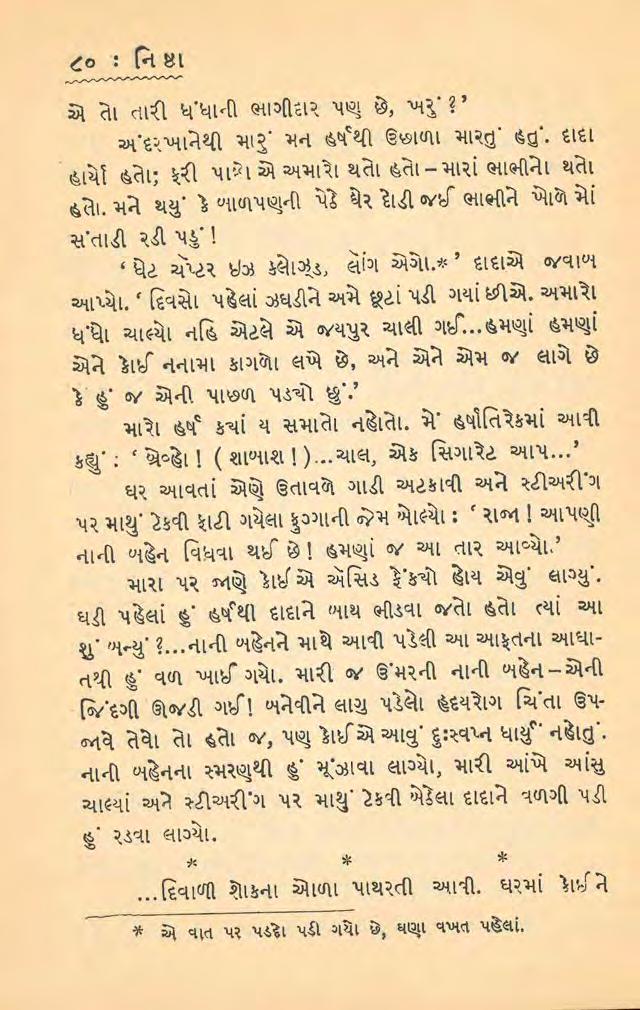 ૮૦ : નિષ્ઠા
એ તો તારી ધંધાની ભાગીદાર પણ છે, ખરું ?’
અંદરખાનેથી મારું મન હર્ષથી ઉછાળા મારતું હતું. દાદા
હાર્યો હતો; ફરી પાછો એ અમારો થતો હતો – મારાં ભાભીનો થતો
હતો. મને થયું કે બાળપણની પેઠે ઘેર દોડી જઈ ભાભીને ખોળે મોં
સંતાડી રડી પડું !
‘ ધેટ ચૅપ્ટર ઇઝ ક્લોઝ્ડ, લૉંગ એગો.* ’ દાદાએ જવાબ
આપ્યો. ‘ દિવસો પહેલાં ઝઘડીને અમે છૂટાં પડી ગયાં છીએ. અમારો
ધંધો ચાલ્યો નહિ એટલે એ જયપુર ચાલી ગઈ...હમણાં હમણાં
એને કોઈ નનામા કાગળો લખે છે, અને એને એમ જ લાગે છે
કે હું જ એની પાછળ પડ્યો છું.’
મારો હર્ષ ક્યાં ય સમાતો નહોતો. મેં હર્ષાતિરેકમાં આવી
કહ્યું : ‘ બ્રેવ્હો ! ( શાબાશ ! )...ચાલ, એક સિગારેટ આપ...’
ઘર આવતાં એણે ઉતાવળે ગાડી અટકાવી અને સ્ટીઅરીંગ
પર માથું ટેકવી ફાટી ગયેલા ફુગ્ગાની જેમ બોલ્યો : ‘ રાજા ! આપણી
નાની બહેન વિધવા થઈ છે ! હમણાં જ આ તાર આવ્યો.’
મારા પર જાણે કોઈએ ઍસિડ ફેંક્યો હોય એવું લાગ્યું.
ઘડી પહેલાં હું હર્ષથી દાદાને બાથ ભીડવા જતો હતો ત્યાં આ
શું બન્યું ?...નાની બહેનને માથે આવી પડેલી આ આફતના આઘા-
તથી હું વળ ખાઈ ગયો. મારી જ ઉંમરની નાની બહેન – એની
જિંદગી ઊજડી ગઈ! બનેવીને લાગુ પડેલો હૃદયરોગ ચિંતા ઉપ-
જાવે તેવો તો હતો જ, પણ કોઈએ આવું દુઃસ્વપ્ન ધાર્યું નહોતું.
નાની બહેનના સ્મરણથી હું મૂંઝાવા લાગ્યો, મારી આંખે આંસુ
ચાલ્યાં અને સ્ટીઅરીંગ પર માથું ટેકવી બેઠેલા દાદાને વળગી પડી
હું રડવા લાગ્યો.
* * *
...દિવાળી શોકના ઓળા પાથરતી આવી. ઘરમાં કોઈને
* એ વાત પર પડદો પડી ગયો છે, ઘણા વખત પહેલાં.